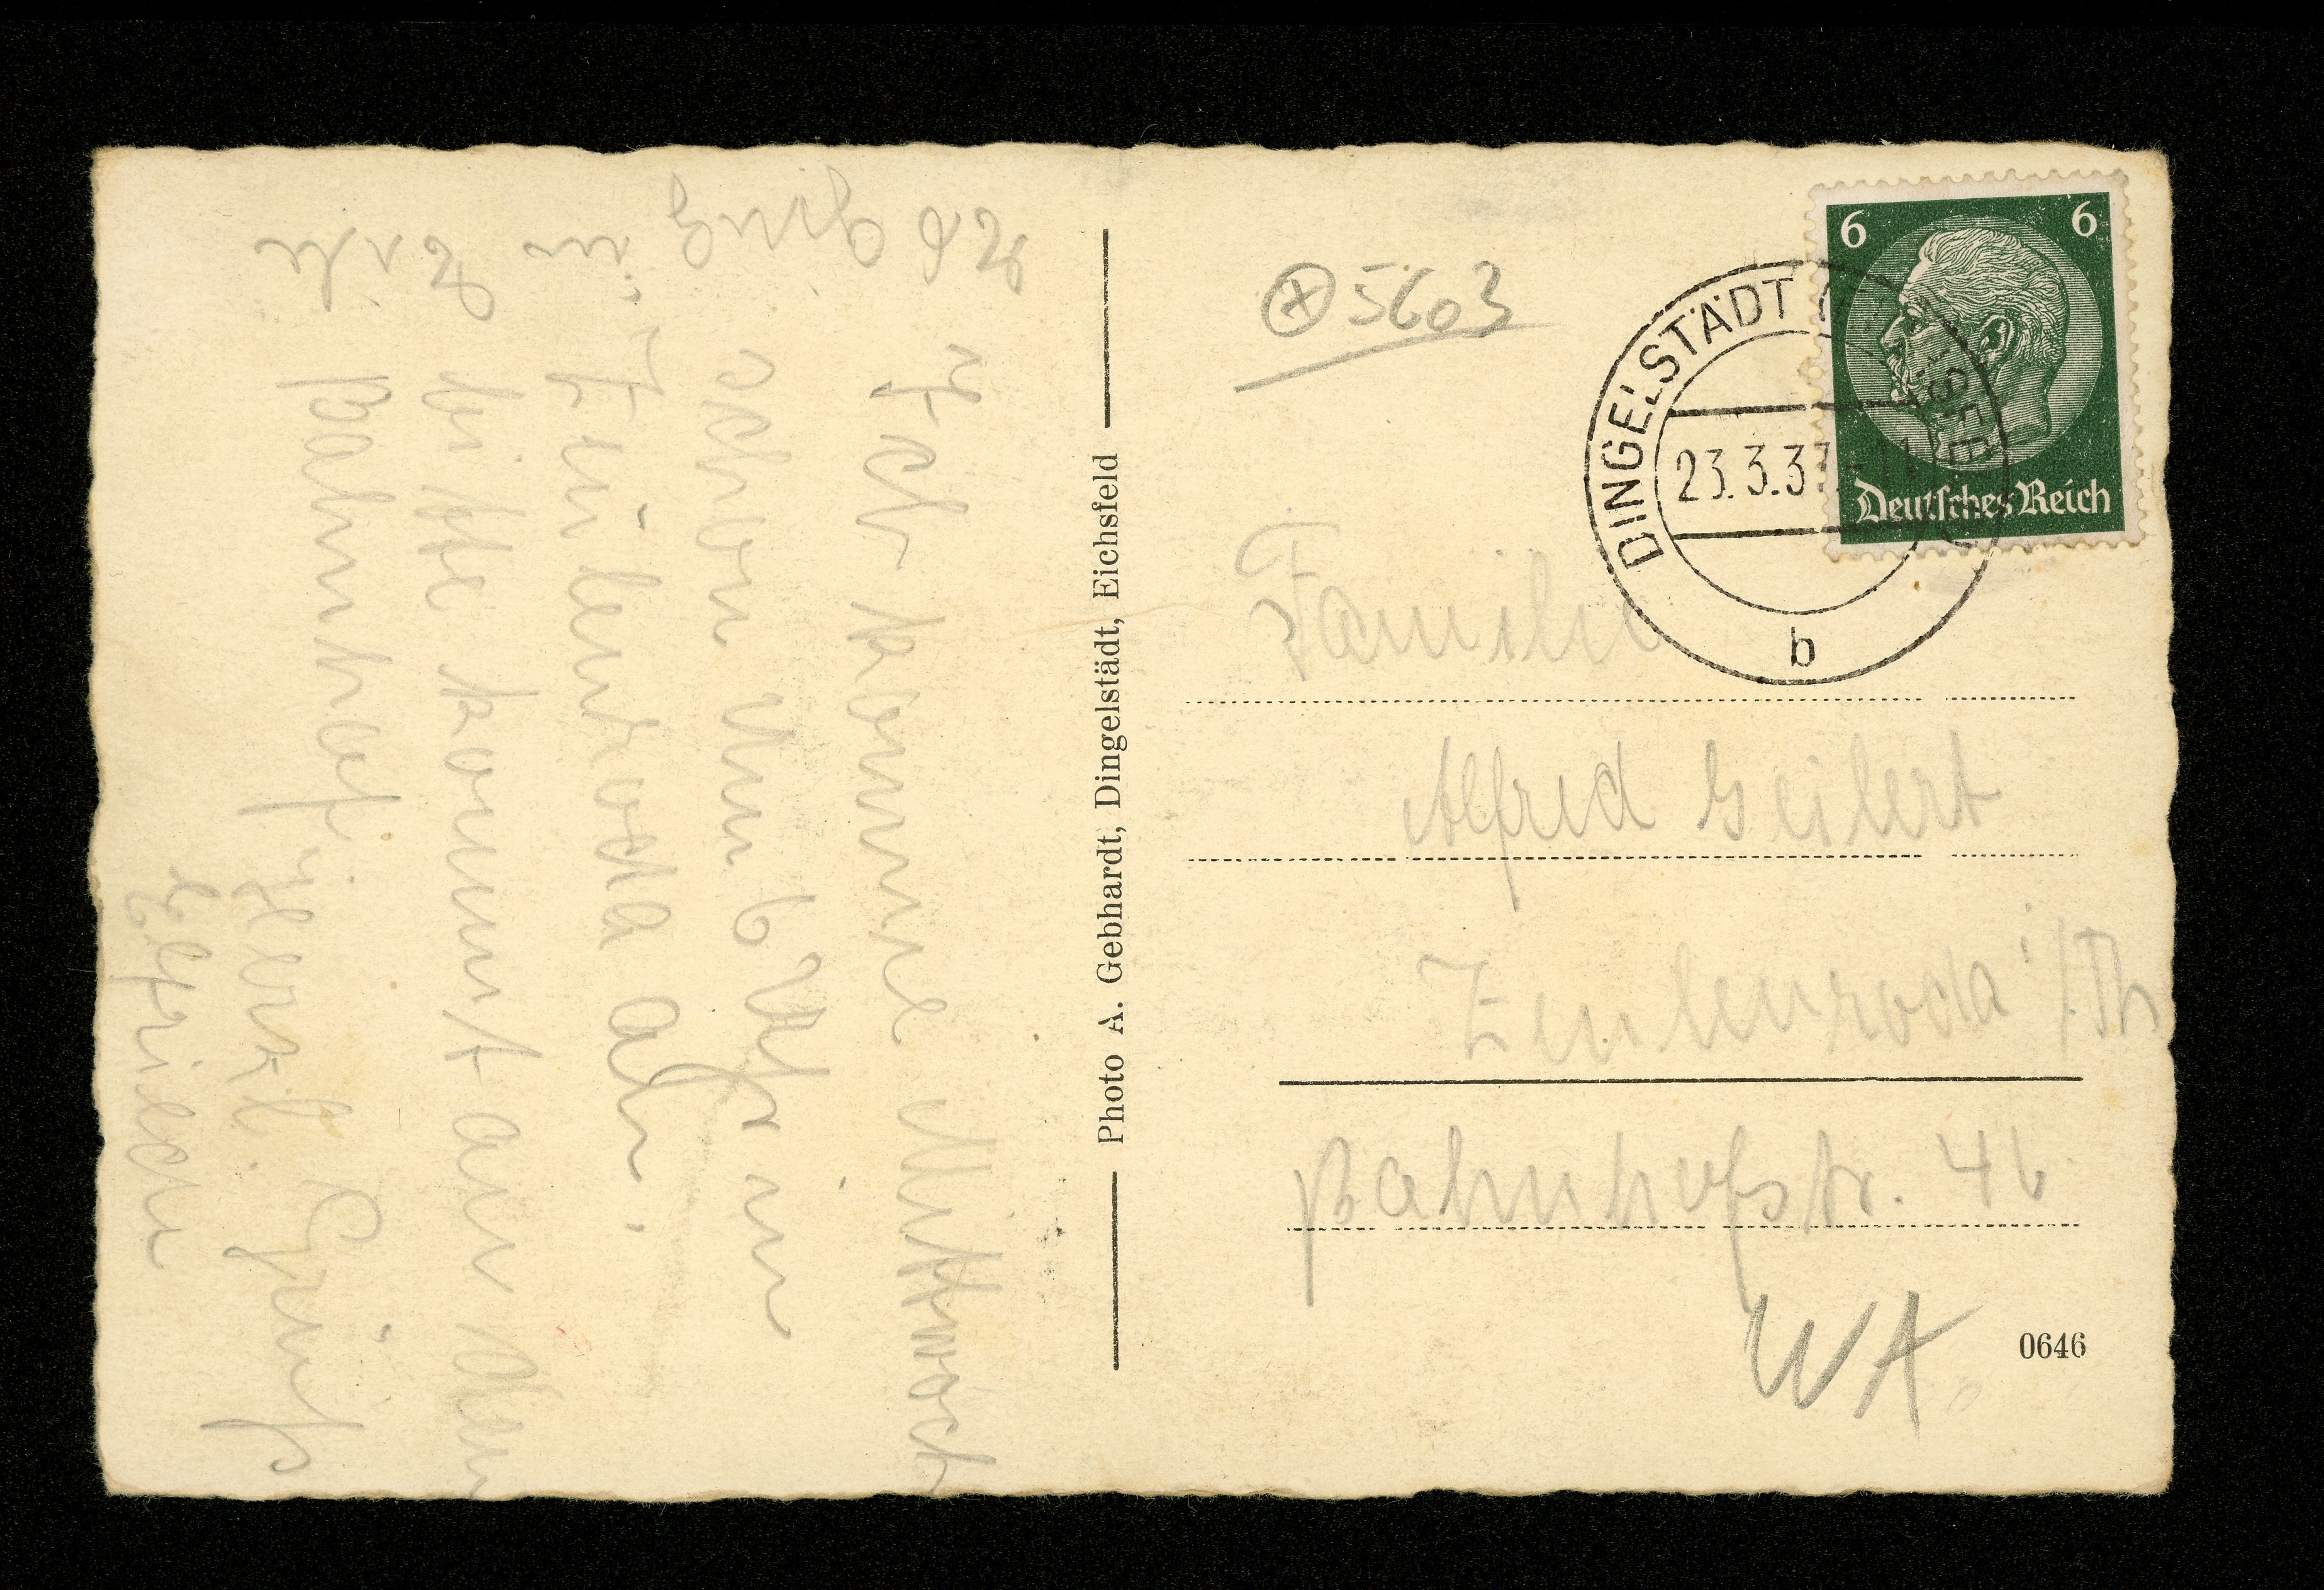 Ich komme Mittwoch
schon um 6 Uhr in
Zeulenroda an.
bitte kommt an den
Bahnhof. Herzl. Gruß
Elfriede
in Eile
Photo A. Gebhardt, Dingelstädt, Eichsfeld
5603
6 6
Deutsches Reich
DINGELSTÄDT
23.3.3
b
Familie
Alfred Geilert
Zeulenroda i/Th
Bahnhofstr. 46
WA
0646